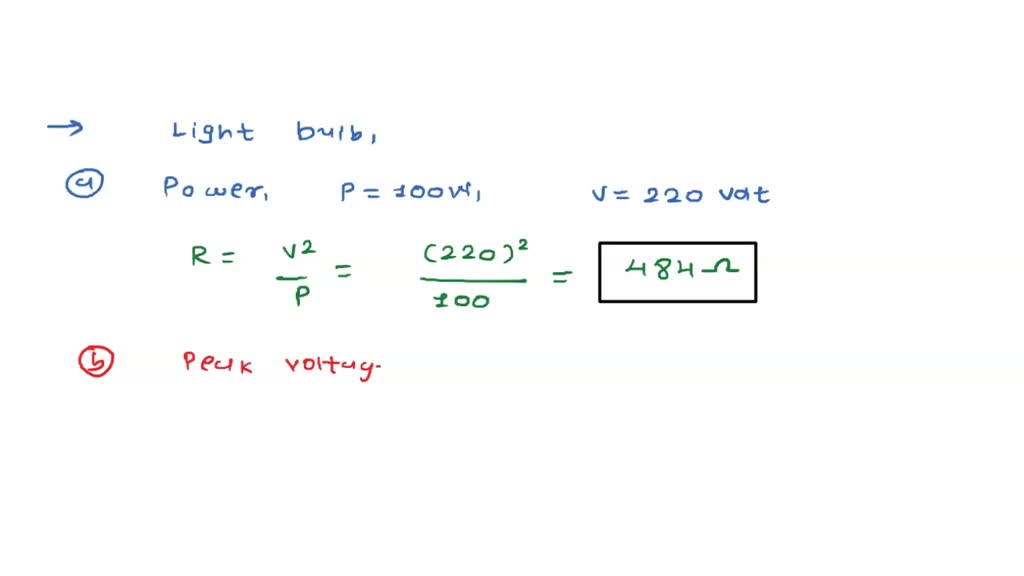 → Light bulb,
(a) Power, P = 100W, V = 220 vat
R = V2/P = (220)²/100 = 484Ω
(b) Peak voltag